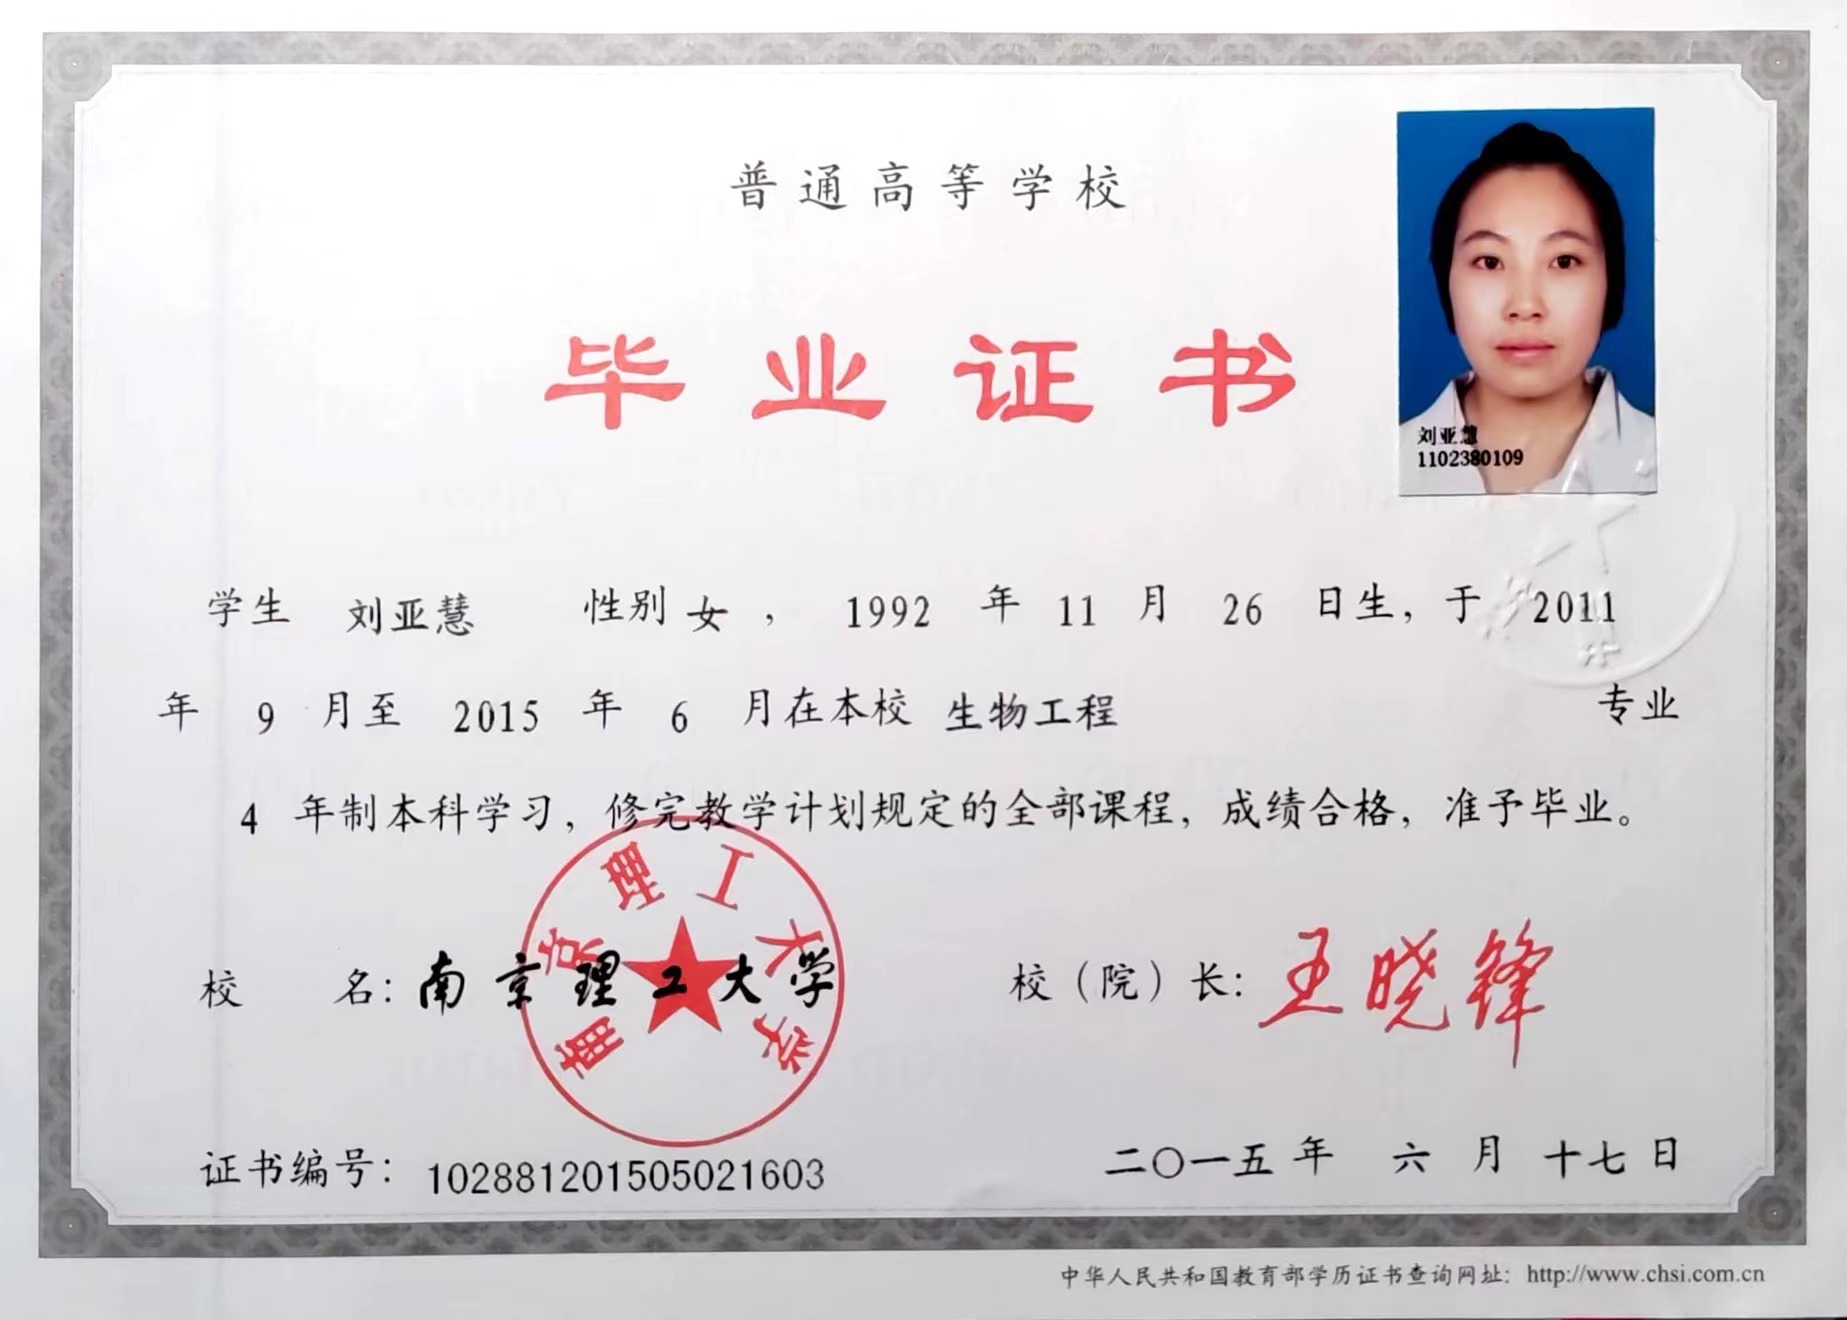 普通高等学校
毕业证书
刘亚慧
1102380109
学生 刘亚慧 性别 女 ， 1992 年 11 月 26 日生，于 2011
年 9 月至 2015 年 6 月在本校 生物工程 专业
4 年制本科学习，修完教学计划规定的全部课程，成绩合格，准予毕业。
南京理工大学
校 名：南京理工大学 校（院）长：王晓锋
证书编号：102881201505021603 二〇一五 年 六 月 十七 日
中华人民共和国教育部学历证书查询网址：http://www.chsi.com.cn